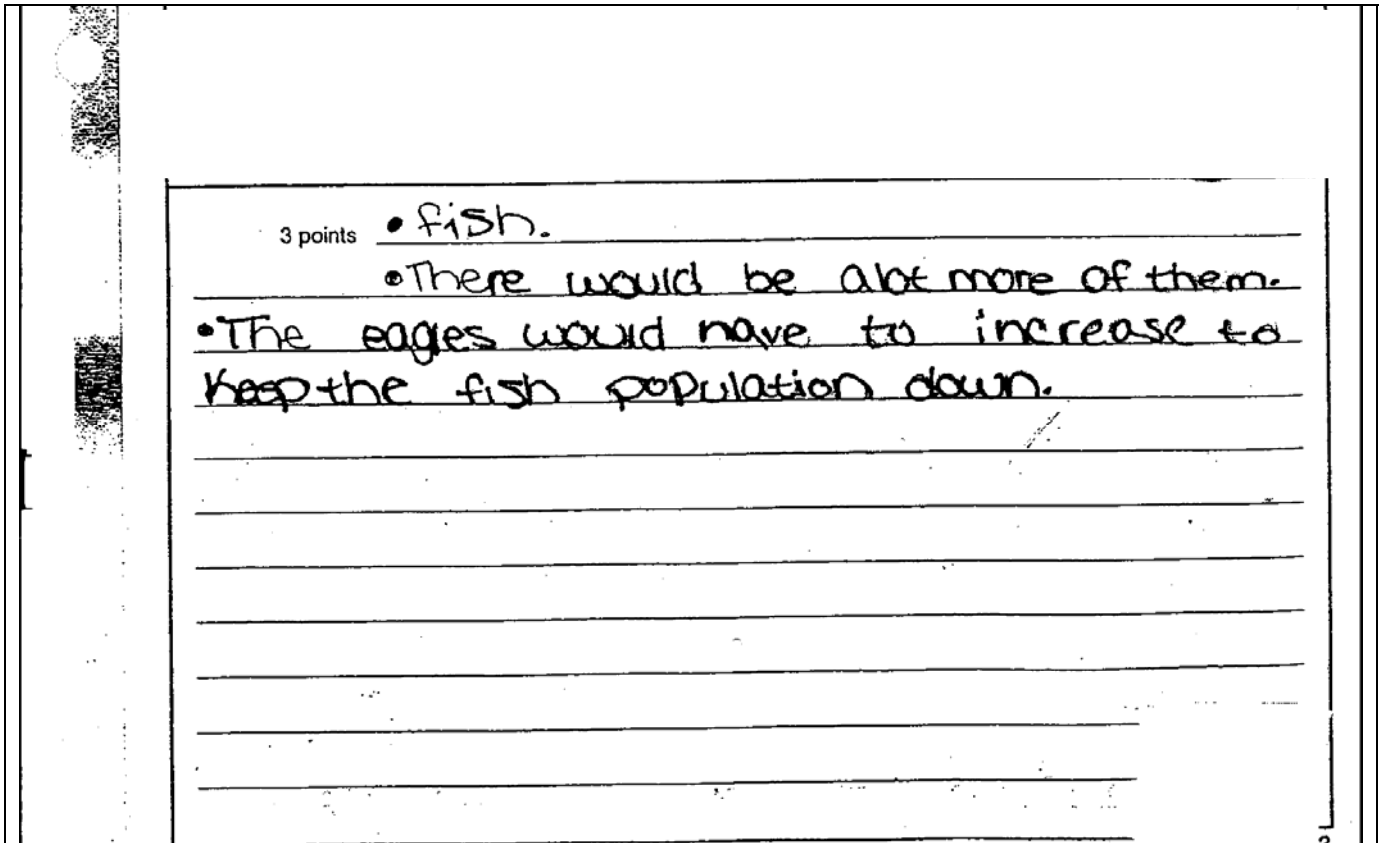 3 points • fish.
• There would be alot more of them.
• The eages would have to increase to
Keep the fish population down.